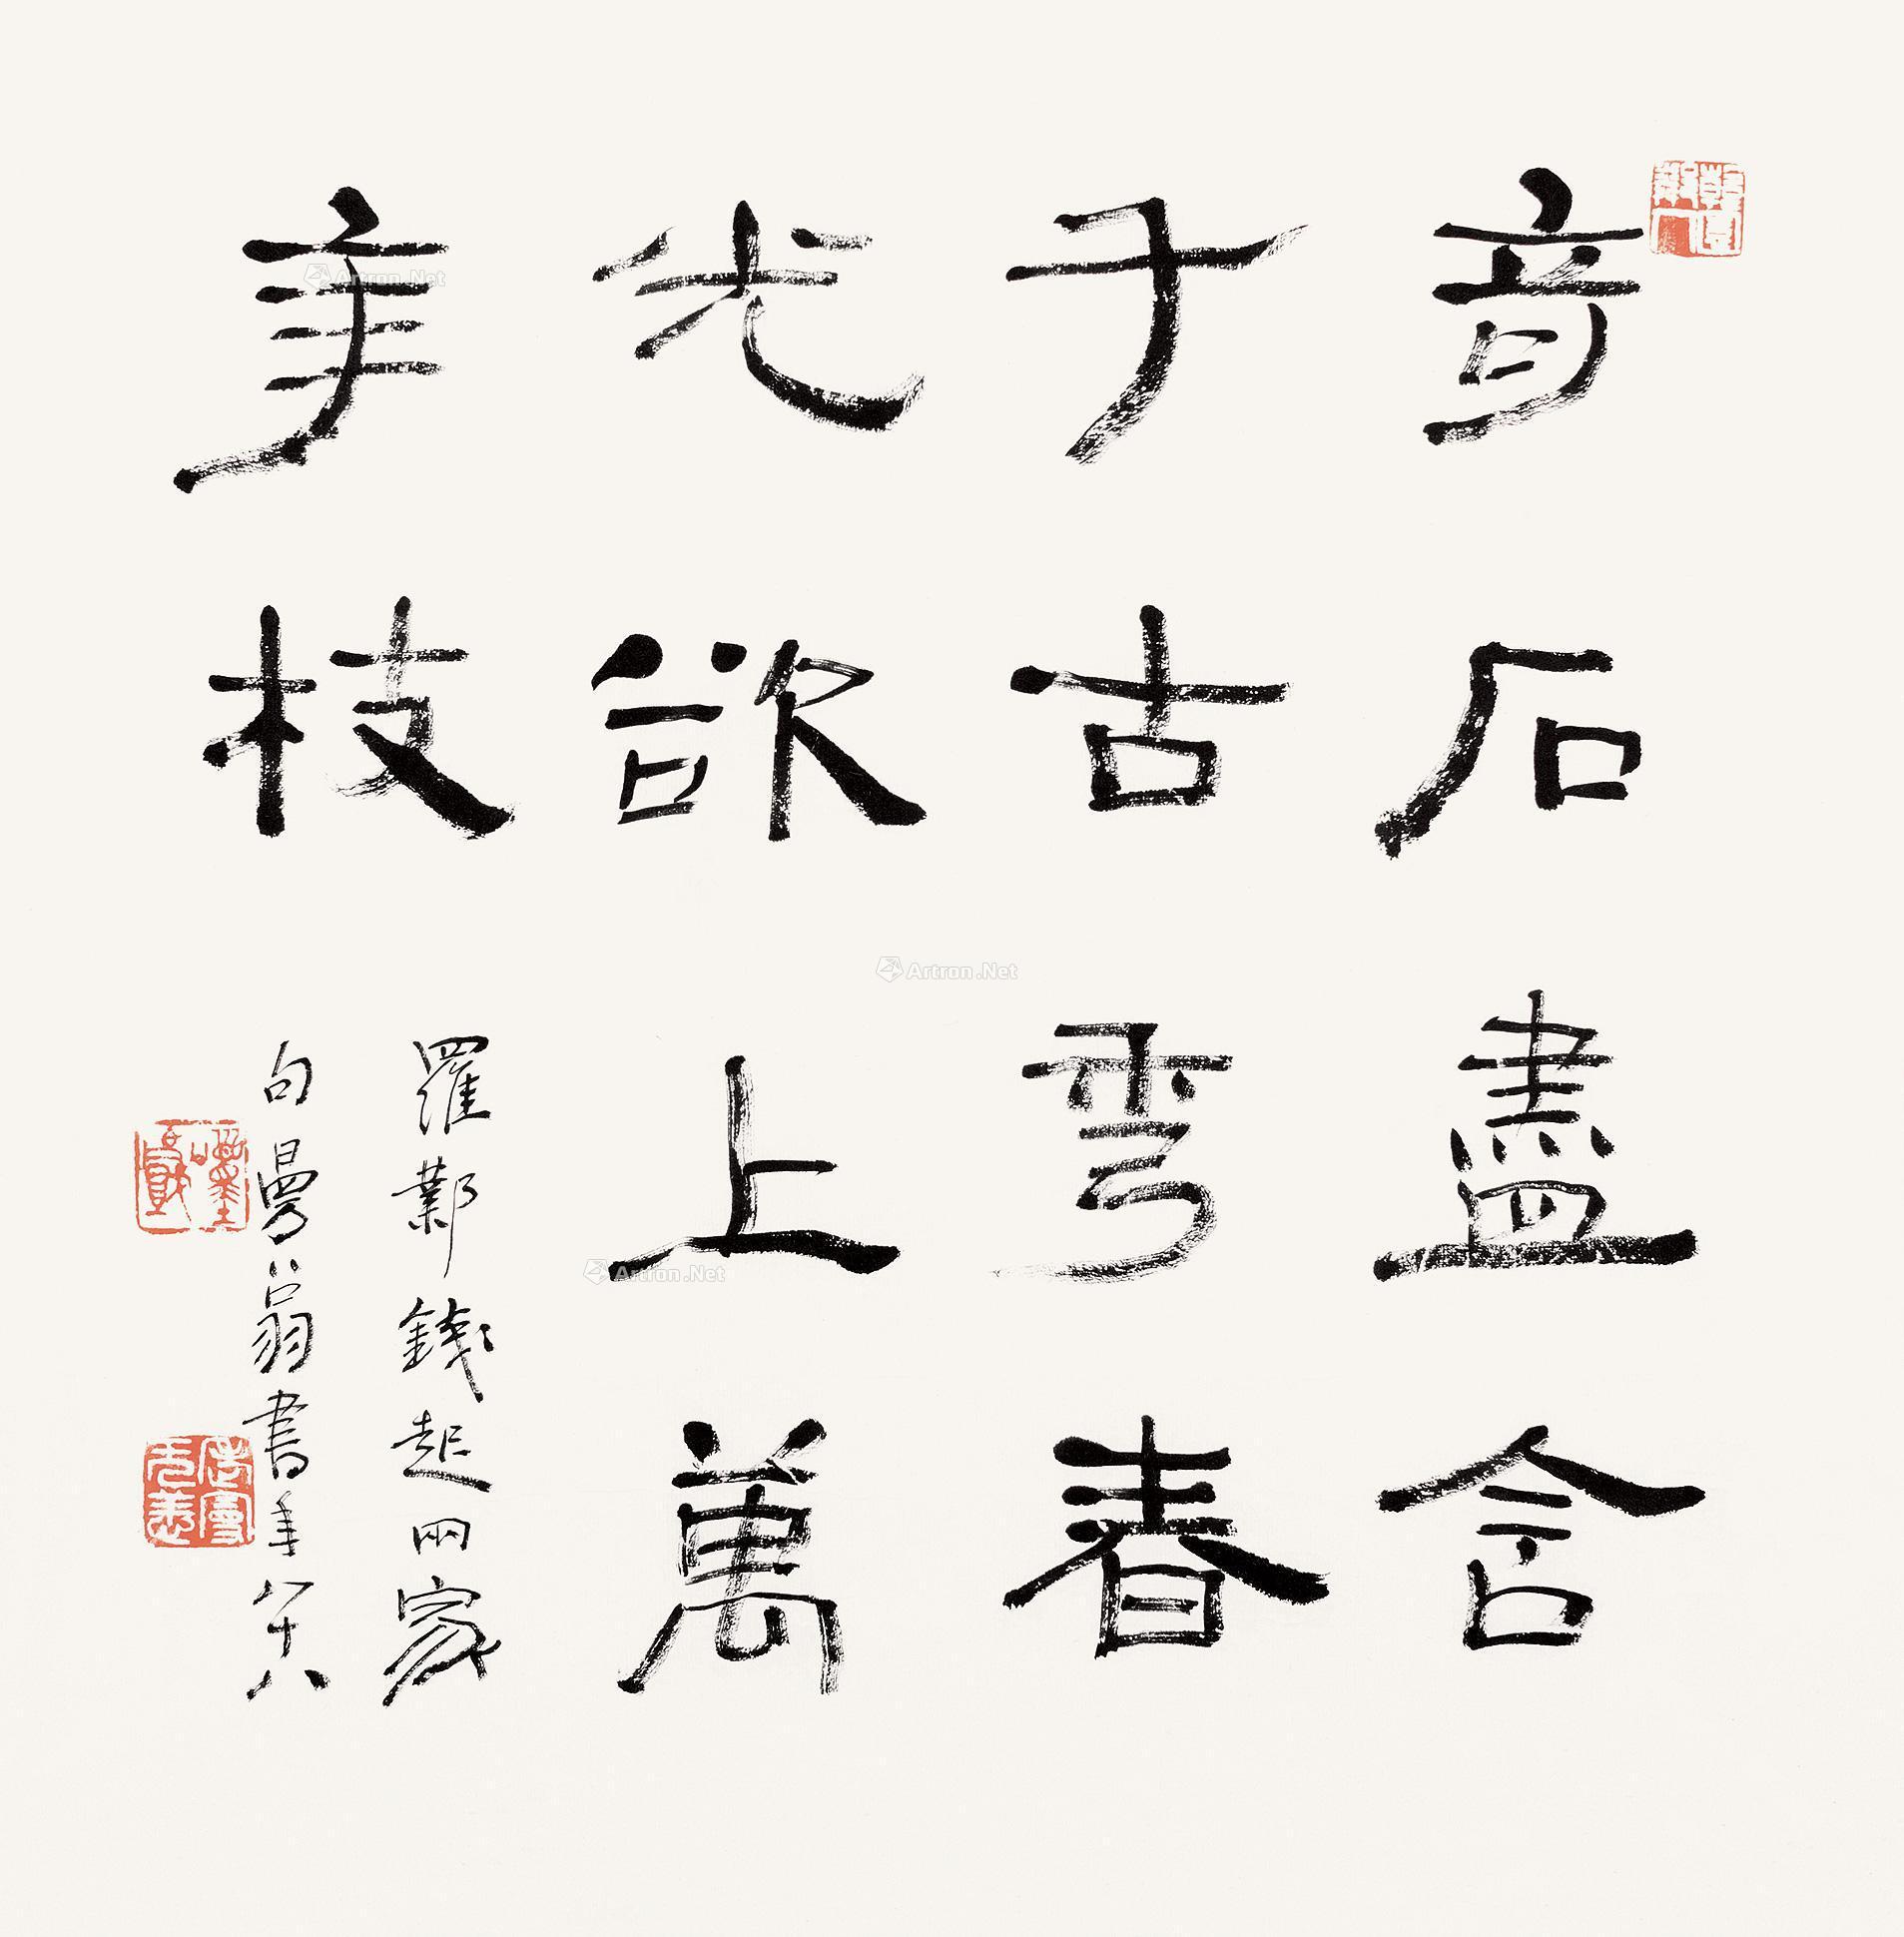 竒石盡含
千古秀春
光欲上萬
年枝
羅鄴錢起兩家
句曼翁書年八十八
Artron.Net
Artron.Net
Artron.Net